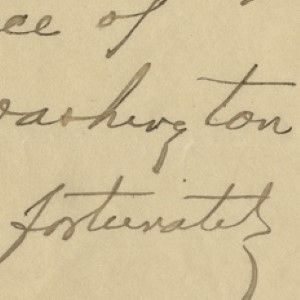 ce of
Washington
fortunately